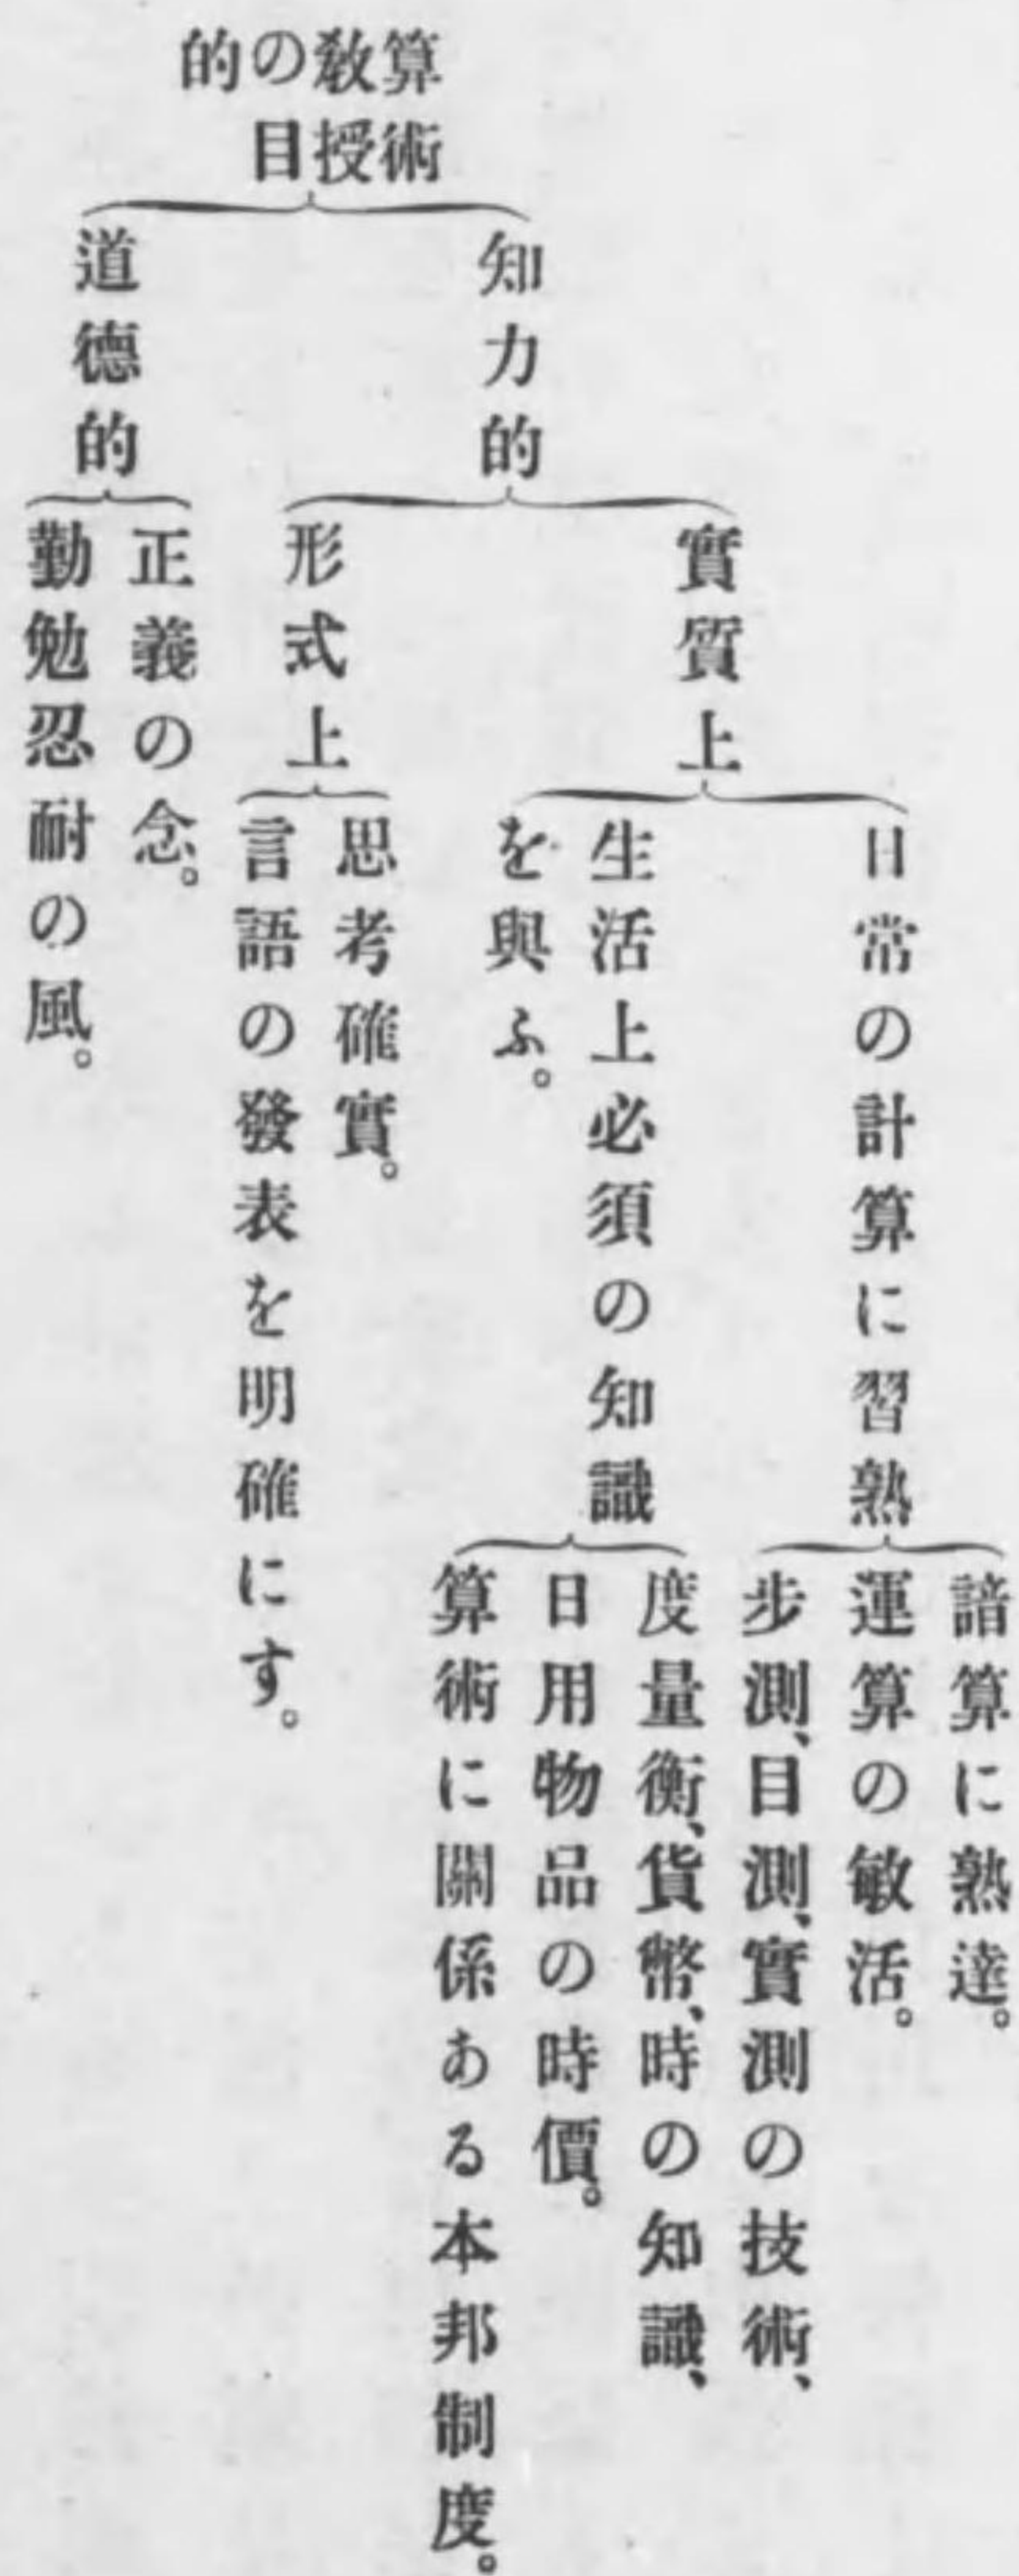 算術
教授
の目
的
知力的
實質上
日常の計算に習熟
諳算に熟達。
運算の敏活。
步測、目測、實測の技術、
生活上必須の知識
を與ふ。
度量衡、貨幣、時の知識、
日用物品の時價。
算術に關係ある本邦制度。
形式上
思考確實。
言語の發表を明確にす。
道德的
正義の念。
勤勉忍耐の風。